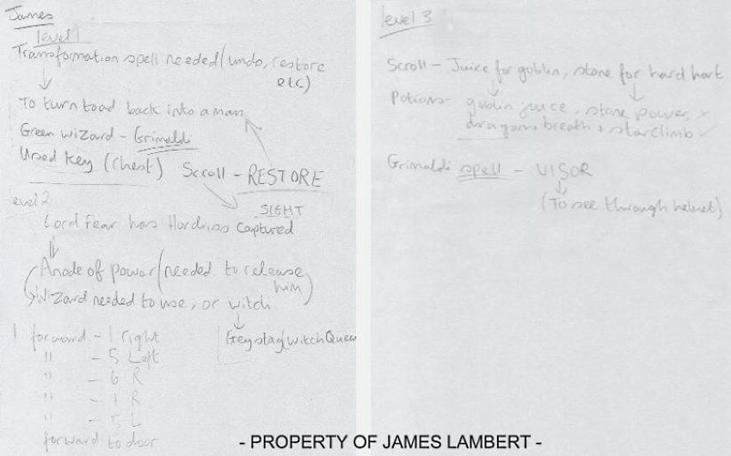 James
level 1
Transformation spell needed (undo, restore
etc)
To turn toad back into a man
Green wizard - Grimaldi
Used key (chest) Scroll - RESTORE
SIGHT
level 2
Lord Fear has Hordriss captured
Anode of power (needed to release
him)
Wizard needed to use, or witch
Greystag (Witch Queen
1 forward - 1 right
" - 5 Left
" - 6 R
" - 1 R
" - 5 L
forward to door
level 3
Scroll - Juice for goblin, stone for hard hart
Potions - goblin juice, stone power, x
dragons breath, starclimb ✓
Grimaldi spell - VISOR
(To see through helmet)
- PROPERTY OF JAMES LAMBERT -